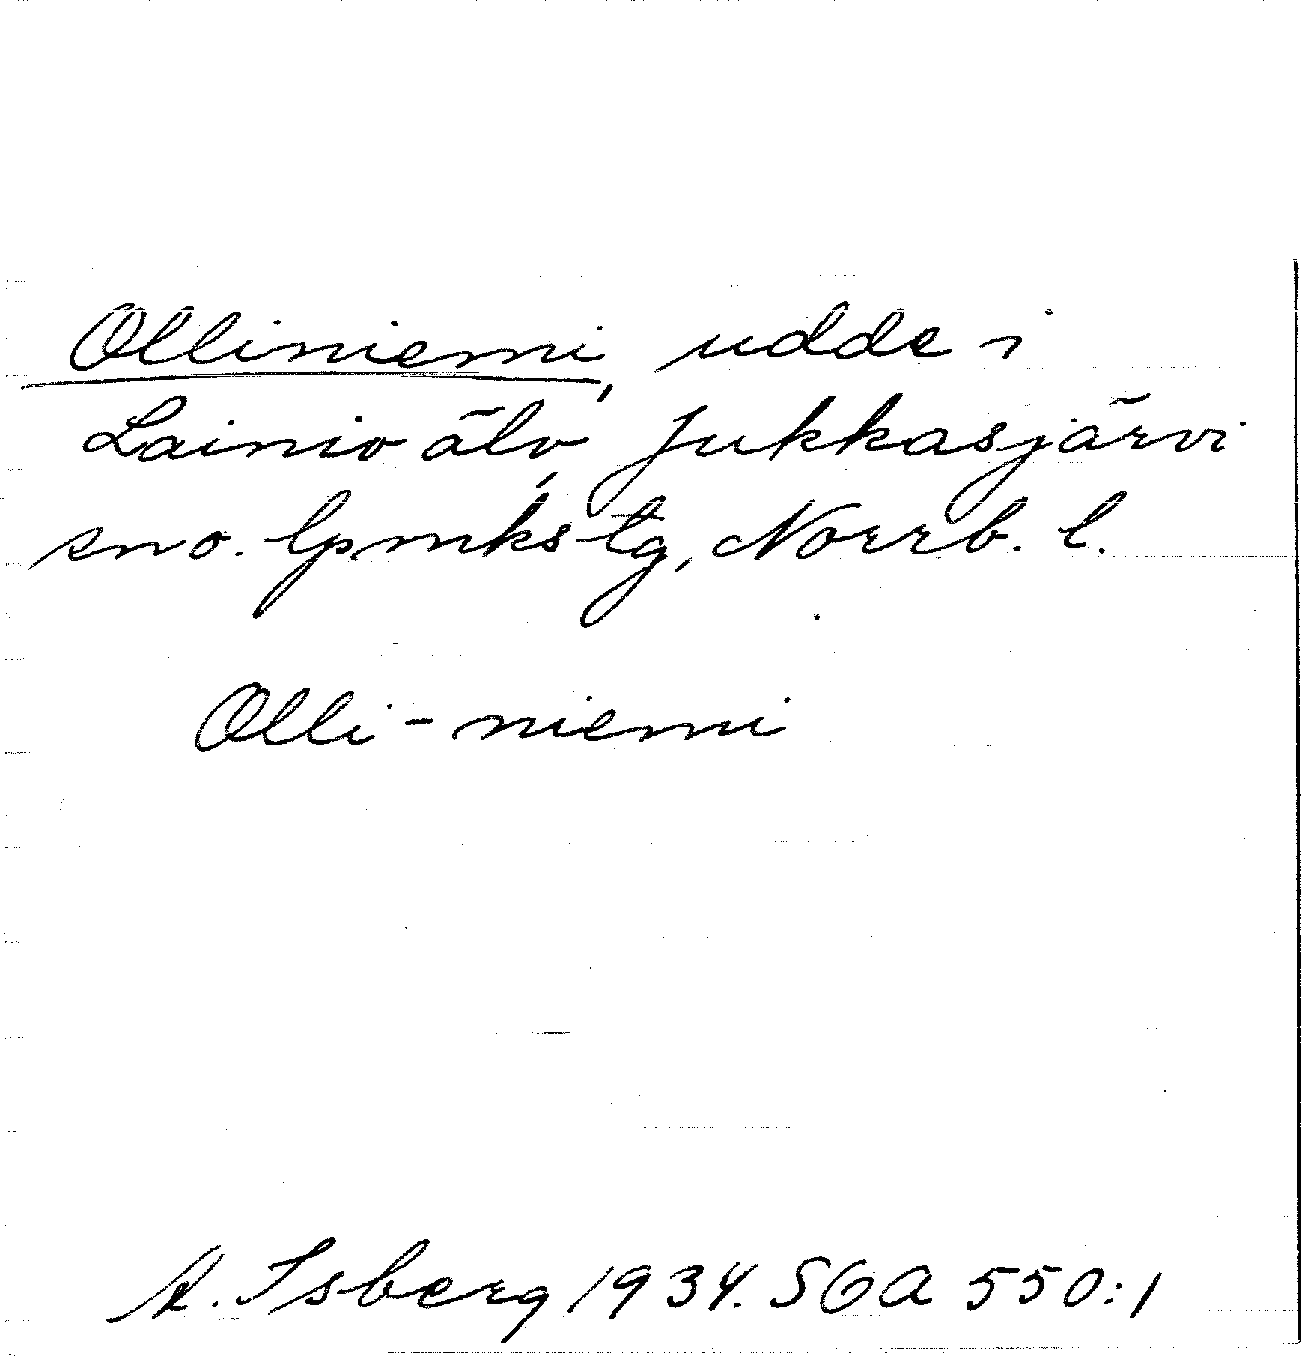 Olliniemi, udde i
Lainio älv, Jukkasjärvi
sno. lpmks tg, Norrb. l.
Olli-niemi
A. Isberg 1934. SOA 550:1